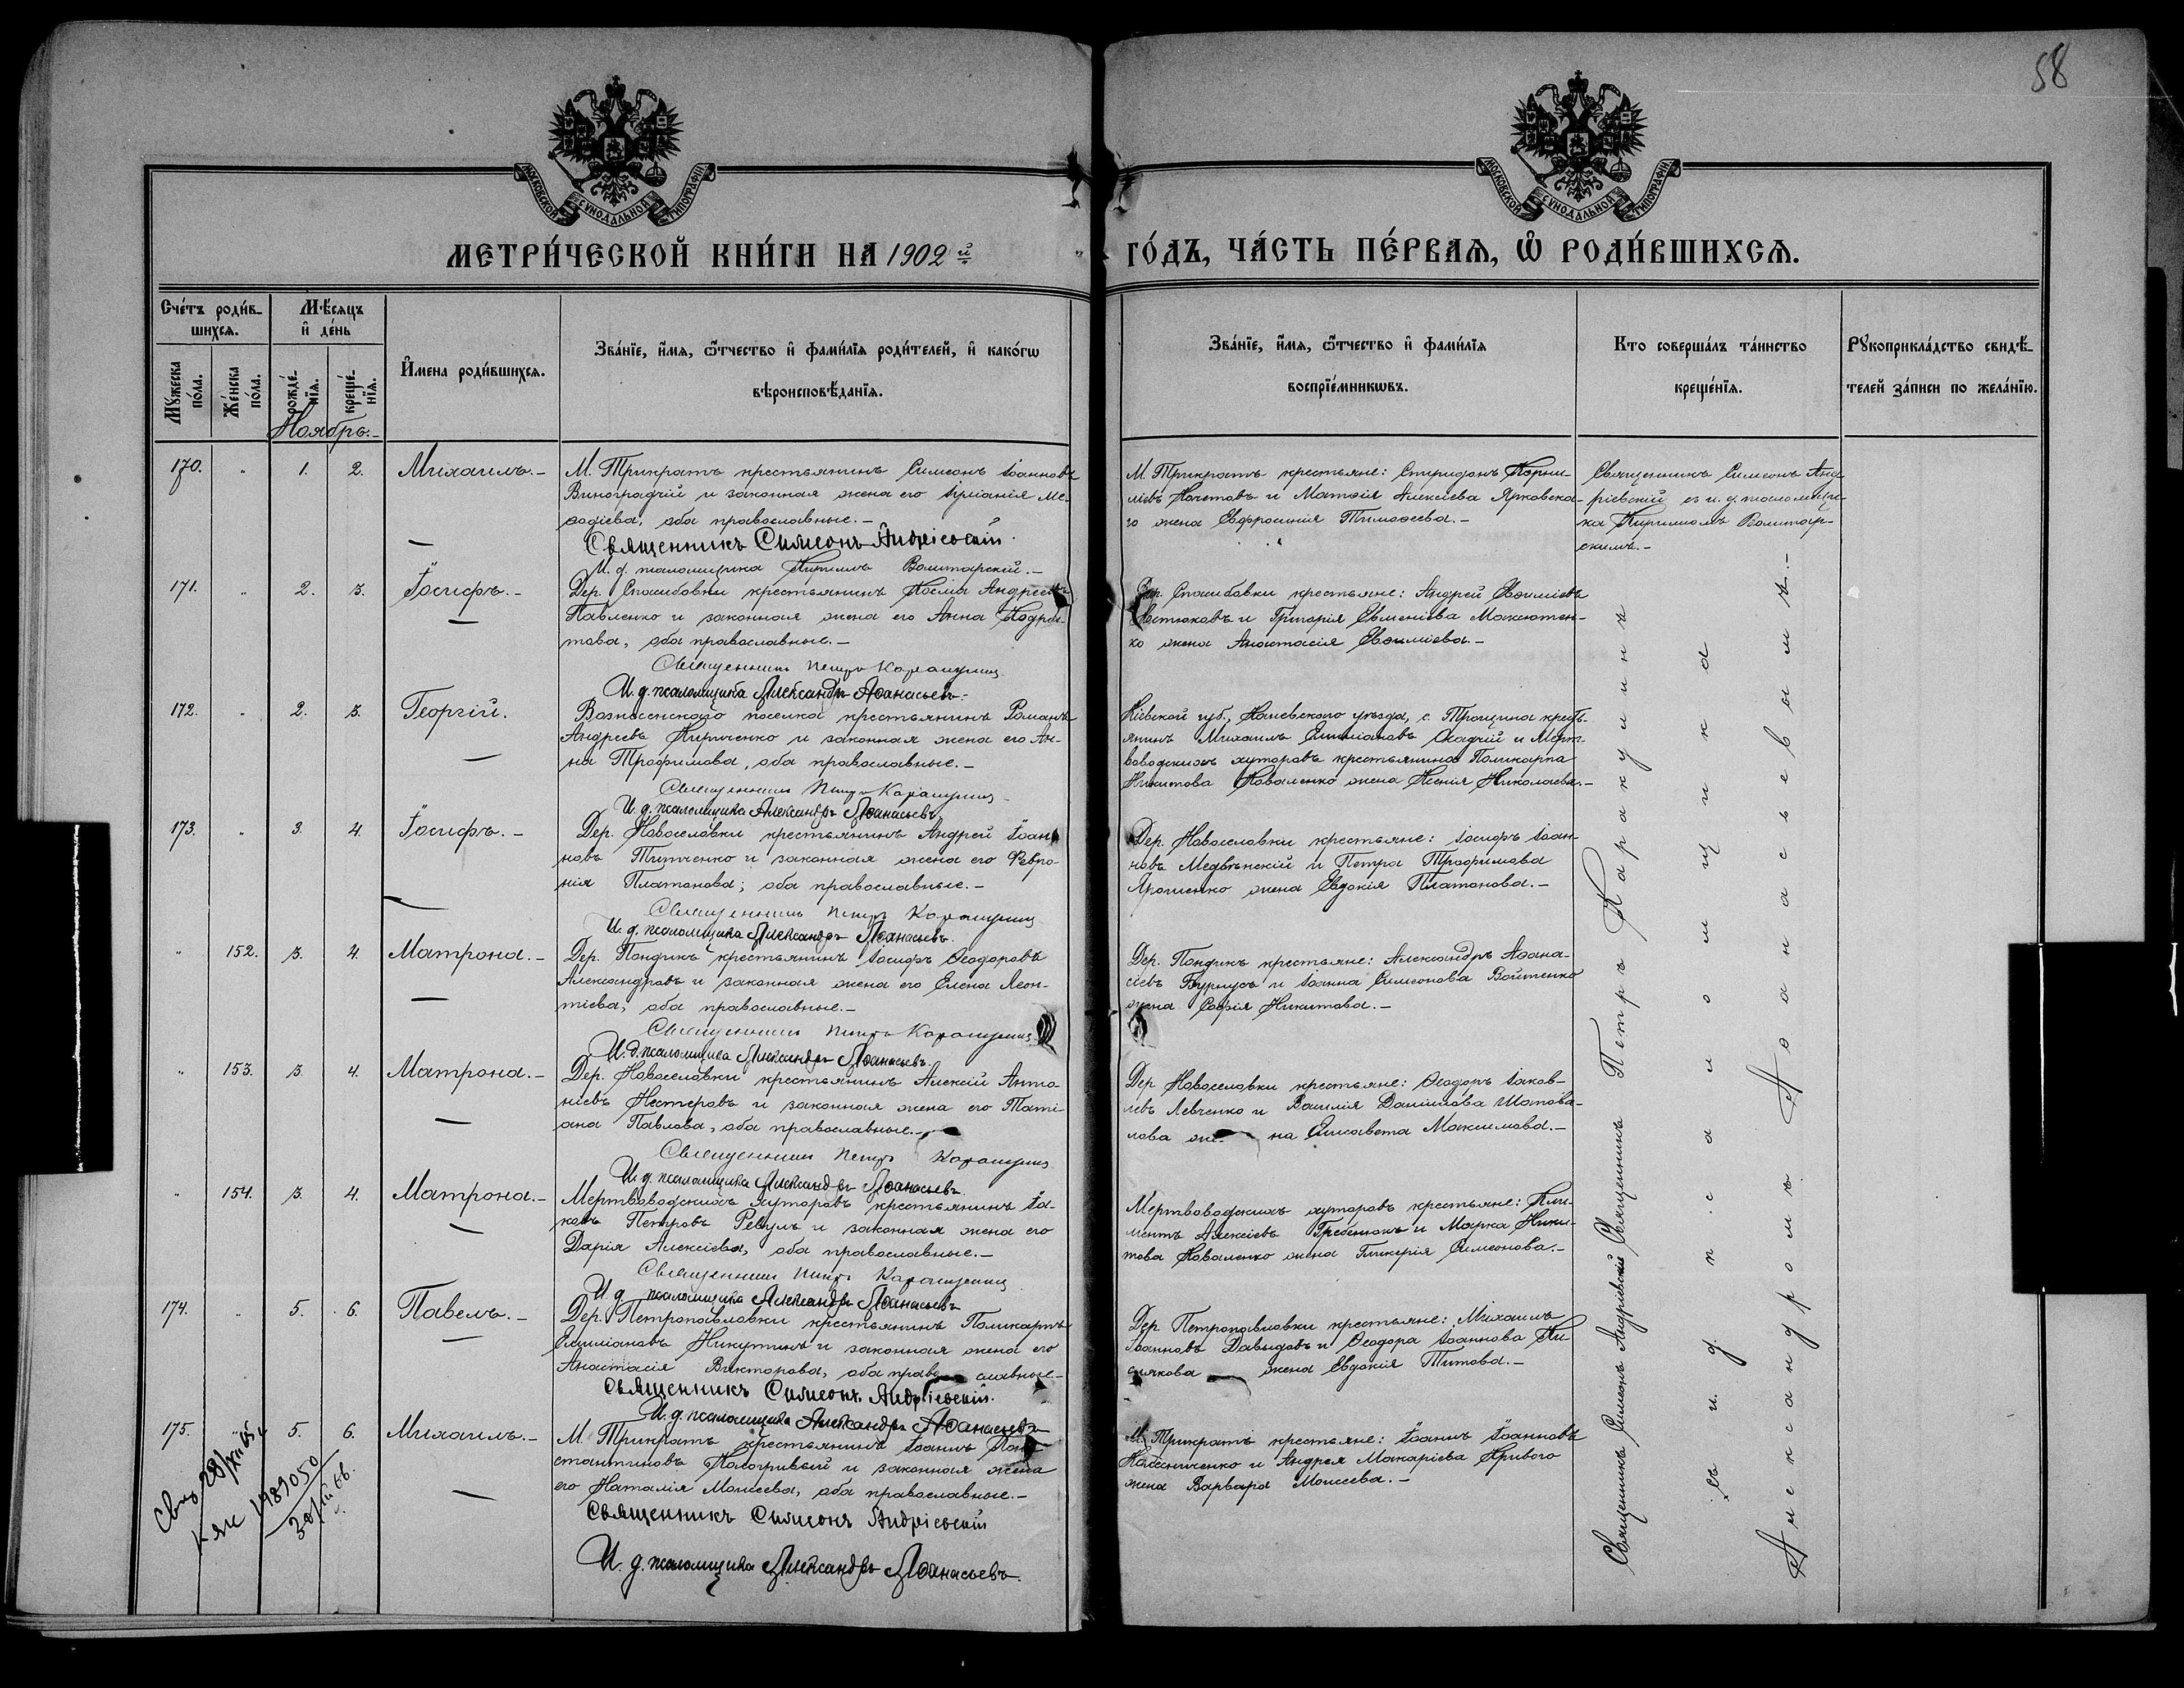 58
МОСКОВСКОЙ СУНОДАЛЬНОЙ ТИПОГРАФІИ
МОСКОВСКОЙ СУНОДАЛЬНОЙ ТИПОГРАФІИ
МЕТРИ́ЧЕСКОЙ КНИ́ГИ НА 1902й
ГО́ДЪ, ЧА́СТЬ ПЕ́РВАѦ, Ѡ҆ РОДИ́ВШИХСѦ.
Сче́тъ роди́в-
шихсѧ.
Мѣ́сѧцъ
и҆ де́нь
Мꙋжеска по́ла.
Же́нска по́ла.
рожде́нїѧ.
креще́нїѧ.
И҆мена роди́вшихсѧ.
Зва́нїе, и҆́мѧ, ѻ҆́тчество и҆ фами́лїѧ роди́телей, и҆ како́гѡ
вѣроисповѣ́данїѧ.
Зва́нїе, и҆́мѧ, ѻ҆́тчество и҆ фами́лїѧ
воспрїе́мникѡвъ.
Кто соверша́лъ та́инство
креще́нїѧ.
Рꙋкоприкла́дство свидѣ́-
телей за́писи по жела́нїю.
Ноябрь.-
170. " 1. 2. Михаилъ.-
М. Трикратъ крестьянинъ Симеонъ Іоанновъ
Виноградчій и законная жена его Ме-
ѳодіева, оба православные.-
Священникъ Симеонъ Андріевскій.
И. д. псаломщика Кириллъ Волитарскій.-
М. Трикратъ крестьяне: Спиридонъ Корни-
ліевъ и Матѳія Алексіева Ярковска-
го жена Евфросинія Тимоѳеева.-
Священникъ Симеонъ Анд-
ріевскій съ и. д. псаломщи-
ка Кирилломъ Волитар-
скимъ.-
171. " 2. 3. Іосифъ.-
Дер. Спасибовки крестьянинъ Косма Андреевъ
Павленко и законная жена его Анна Кодра-
това, оба православные.-
Священникъ Петръ Каракулинъ
И. д. псаломщика Александръ Аѳанасьевъ.
Дер. Спасибовки крестьяне: Андрей Евѳиміевъ
и Григорія Евменіева Максютен-
ко жена Анастасія Евѳиміева.-
172. " 2. 3. Георгій.
Вознесенскаго поселка крестьянинъ Романъ
Андреевъ Кириченко и законная жена его Ан-
на Трофимова, оба православные.-
Священникъ Петръ Каракулинъ
И. д. псаломщика Александръ Аѳанасьевъ
Кіевской губ., Каневскаго уѣзда, с. Трощина кресть-
янинъ Михаилъ Емиліановъ и Мерт-
воводскихъ хуторовъ крестьянина Поликарпа
Никитова Коваленко жена Ксенія Николаева.-
173. " 3. 4. Іосифъ.-
Дер. Новоселовки крестьянинъ Андрей Іоан-
новъ Титченко и законная жена его Февро-
нія Платонова; оба православные.-
Священникъ Петръ Каракулинъ
И. д. псаломщика Александръ Аѳанасьевъ.
Дер. Новоселовки крестьяне: Іосифъ Іоан-
новъ Медвѣнскій и Петра Трофимова
Ярошенко жена Евдокія Платонова.-
" 152. 3. 4. Матрона.-
Дер. Пондикъ крестьянинъ Іосифъ Ѳеодоровъ
Александровъ и законная жена его Елена Леон-
тіева, оба православные.-
Священникъ Петръ Каракулинъ
И. д. псаломщика Александръ Аѳанасьевъ
Дер. Пондикъ крестьяне: Александръ Аѳана-
сіевъ Бурнусъ и Іоанна Симеонова Войтенко
жена Софія Никитова.-
" 153. 3. 4. Матрона.-
Дер. Новоселовки крестьянинъ Алексій Анто-
ніевъ Нестеровъ и законная жена его Таті-
ана Павлова, оба православные.-
Священникъ Петръ Каракулинъ
И. д. псаломщика Александръ Аѳанасьевъ.
Дер Новоселовки крестьяне: Ѳеодоръ Іаков-
левъ Левченко и Василія Даніилова Шапова-
лова же- на Елисавета Максимова.-
" 154. 3. 4. Матрона.-
Мертвоводскихъ хуторовъ крестьянинъ Іа-
ковъ Петровъ Ревулъ и законная жена его
Дарія Алексіева, оба православные.-
Священникъ Петръ Каракулинъ
И. д. псаломщика Александръ Аѳанасьевъ
Мертвоводскихъ хуторовъ крестьяне: Кли-
ментъ Алексіевъ Гребенюкъ и Марка Ники-
това Коваленко жена Гликерія Симеонова.-
174. " 5. 6. Павелъ.-
Дер. Петропавловки крестьянинъ Поликарпъ
Емиліановъ Никутинъ и законная жена его
Анастасія Викторова, оба право славные-
Священникъ Симеонъ Андріевскій.
И. д. псаломщика Александръ Аѳанасьевъ
Дер Петропавловки крестьяне: Михаилъ
Іоанновъ Давыдовъ и Ѳеодора Іоаннова Ки-
слякова жена Евдокія Титова.-
175. " 5. 6. Михаилъ.-
М. Трикратъ крестьянинъ Іоаннъ Кон-
стантиновъ Косогривый и законная жена
его Наталія Моисеева, оба православные.-
Священникъ Симеонъ Андріевскій
И. д. псаломщика Александръ Аѳанасьевъ.
М. Трикратъ крестьяне: Іоаннъ Іоанновъ
Колесниченко и Андрея Макаріева Кривого
жена Варвара Моисеева.-
Священникъ Симеонъ Андріевскій Священникъ Петръ Каракулинъ
съ и. д. псаломщика
Александромъ Аѳанасьевымъ.-